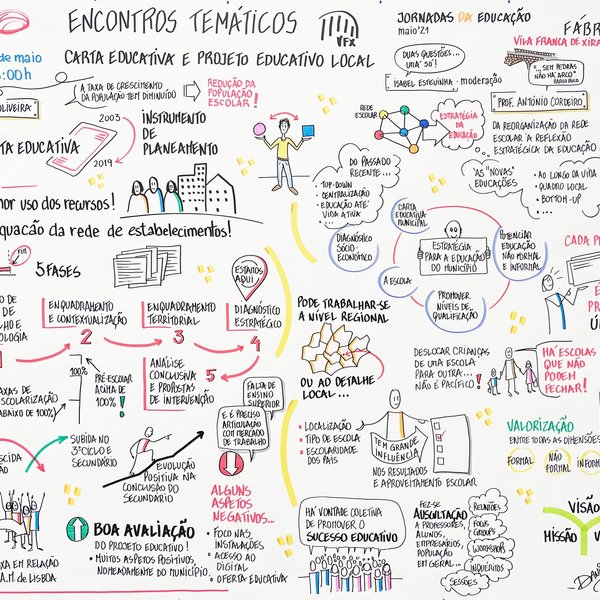 ENCONTROS TEMÁTICOS
VFX
CARTA EDUCATIVA E PROJETO EDUCATIVO LOCAL
JORNADAS DA EDUCAÇÃO
maio'21
FÁBR
VILA FRANCA DE XIRA
de maio
:00h
OLIVEIRA
A TAXA DE CRESCIMENTO
DA POPULAÇÃO TEM DIMINUÍDO
REDUÇÃO DA
POPULAÇÃO
ESCOLAR!
DUAS QUESTÕES...
UMA SÓ!
ISABEL ESTEVINHA · moderação
"... SEM PEDRAS
NÃO HÁ ARCO"
PROF. ANTÓNIO CORDEIRO
DA REORGANIZAÇÃO DA REDE
ESCOLAR À REFLEXÃO
ESTRATÉGICA DA EDUCAÇÃO
2003
2019
TA EDUCATIVA
INSTRUMENTO
DE
PLANEAMENTO
REDE
ESCOLAR
ESTRATÉGIA
DA
EDUCAÇÃO
DO PASSADO
RECENTE...
• TOP-DOWN
• CENTRALIZAÇÃO
• EDUCAÇÃO ATÉ
VIDA ATIVA
...
AS "NOVAS"
EDUCAÇÕES
• AO LONGO DA VIDA
• QUADRO LOCAL
• BOTTOM-UP
...
hor uso dos recursos!
equação da rede de estabelecimentos!
CARTA
EDUCATIVA
MUNICIPAL
DIAGNÓSTICO
SÓCIO-
ECONÓMICO
ESTRATÉGIA
PARA A EDUCAÇÃO
DO MUNICÍPIO
POTENCIAR
EDUCAÇÃO
NÃO FORMAL
E INFORMAL
A ESCOLA
PROMOVER
NÍVEIS DE
QUALIFICAÇÃO
CADA P
É
PR
ÚN
FIM
5 FASES
ESTAMOS
AQUI
ENQUADRAMENTO
E CONTEXTUALIZAÇÃO
2
ENQUADRAMENTO
TERRITORIAL
3
DIAGNÓSTICO
ESTRATÉGICO
4
ANÁLISE
CONCLUSIVA
E PROPOSTAS
DE INTERVENÇÃO
5
PODE TRABALHAR-SE
A NÍVEL REGIONAL
OU AO DETALHE
LOCAL...
• LOCALIZAÇÃO
• TIPO DE ESCOLA
• ESCOLARIDADE
DOS PAIS
TEM GRANDE
INFLUÊNCIA
NOS RESULTADOS
E APROVEITAMENTO ESCOLAR
DESLOCAR CRIANÇAS
DE UMA ESCOLA
PARA OUTRA...
NÃO É PACÍFICO!
HÁ ESCOLAS
QUE NÃO
PODEM
FECHAR!
VALORIZAÇÃO
ENTRE TODAS AS DIMENSÕES
FORMAL
NÃO
FORMAL
INFORM
AXAS DE
SCOLARIZAÇÃO
ABAIXO DE 100%)
100%
PRÉ-ESCOLAR
ACIMA DE
100%!
FALTA DE
ENSINO
SUPERIOR
E É PRECISO
ARTICULAÇÃO
COM MERCADO
DE TRABALHO
SCIDA
SUBIDA NO
3º CICLO E
SECUNDÁRIO
EVOLUÇÃO
POSITIVA NA
CONCLUSÃO DO
SECUNDÁRIO
ALGUNS
ASPETOS
NEGATIVOS...
• FOCO NAS
INSTALAÇÕES
• ACESSO AO
DIGITAL
• OFERTA EDUCATIVA
BOA AVALIAÇÃO
DO PROJETO EDUCATIVO!
• MUITOS ASPETOS POSITIVOS,
NOMEADAMENTE DO MUNICÍPIO
IXA EM RELAÇÃO
A.M. DE LISBOA
HÁ VONTADE COLETIVA
DE PROMOVER O
SUCESSO EDUCATIVO
FEZ-SE
AUSCULTAÇÃO
A PROFESSORES,
ALUNOS,
EMPRESÁRIOS,
POPULAÇÃO
EM GERAL...
REUNIÕES
FOCUS
GROUPS
WORKSHOPS
INQUÉRITOS
SESSÕES
VISÃO
MISSÃO
V